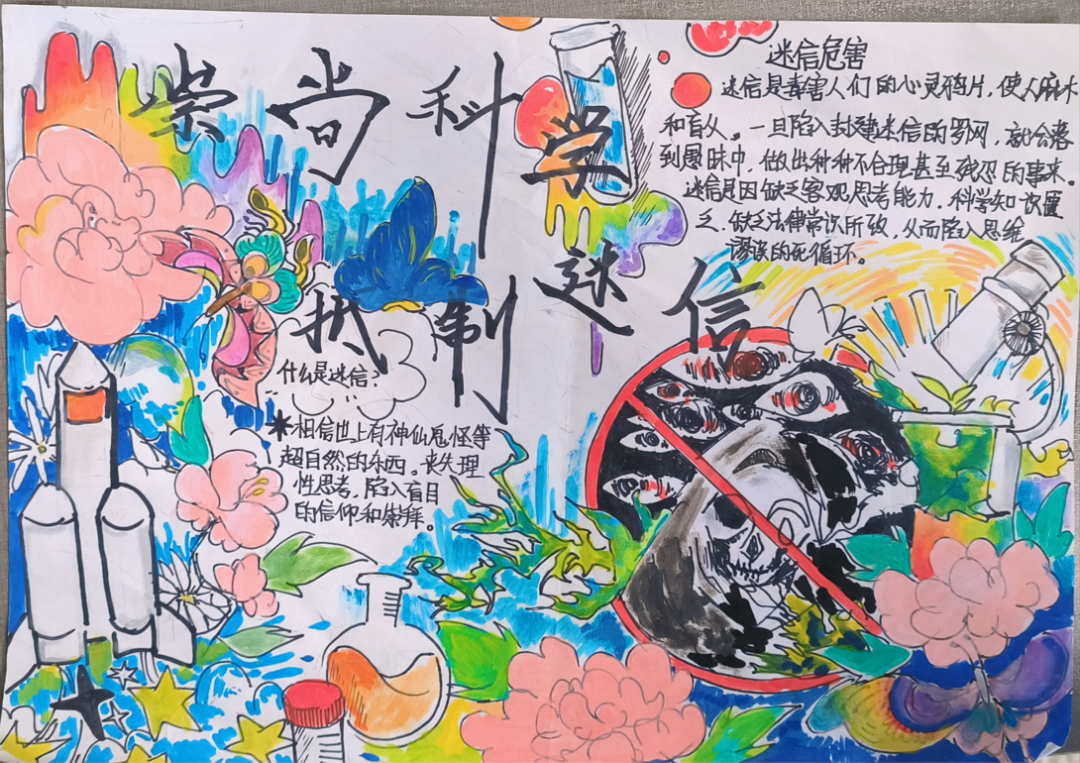 崇尚科学
抵制迷信
迷信危害
迷信是毒害人们的心灵鸦片，使人麻木
和盲从。一旦陷入封建迷信的罗网，就会落
到愚昧中，做出种种不合理甚至残忍的事来。
迷信是因缺乏客观思考能力，科学知识匮
乏，缺乏法律常识所致，从而陷入思维
谬误的死循环。
什么是迷信？
相信世上有神仙鬼怪等
超自然的东西。丧失理
性思考，陷入盲目
的信仰和崇拜。